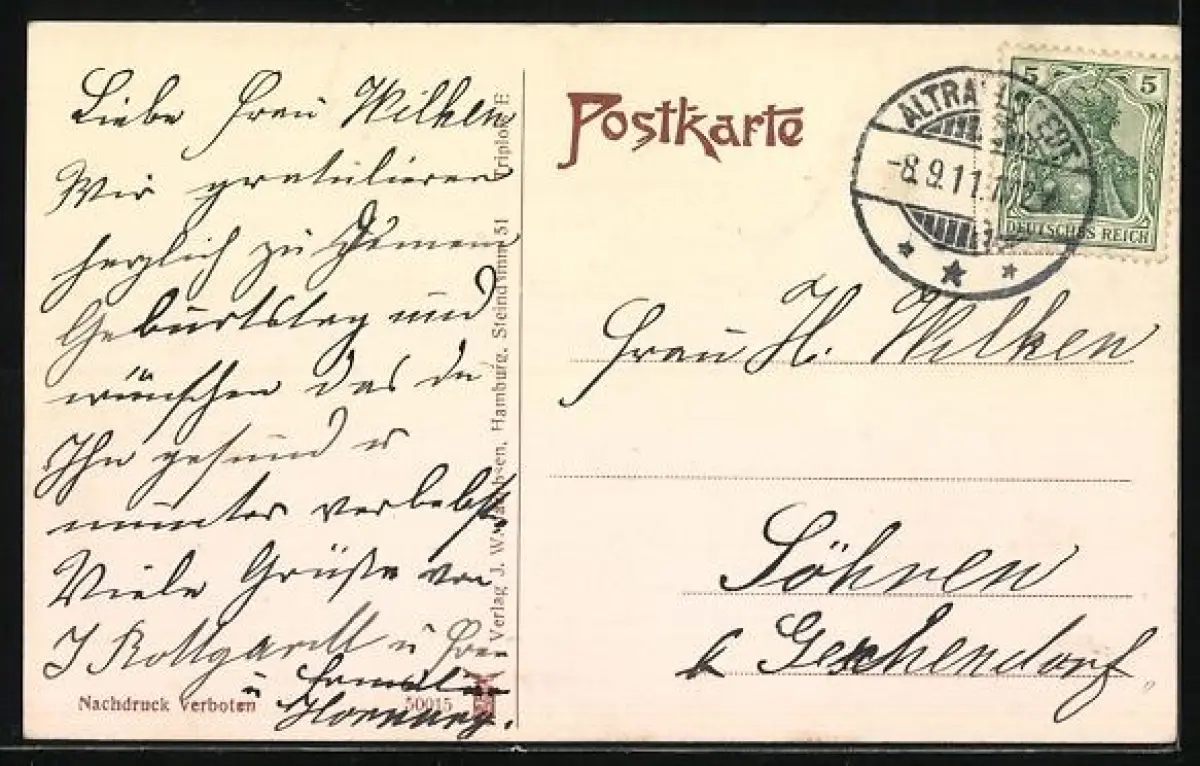 Liebe Frau Wilken
Wir gratulieren
herzlich zu
Geburtstag und
wünschen das du
Ihn gesund u
munter verlebst
Viele Grüße von
u Frau
u Familie
Nachdruck Verboten
50015
Verlag J. W. Hamburg, Steindamm 51
Postkarte
ALTRAHLSTEDT
-8.9.11.
5 5
DEUTSCHES REICH
Frau H. Wilken
Söhren
b Geschendorf